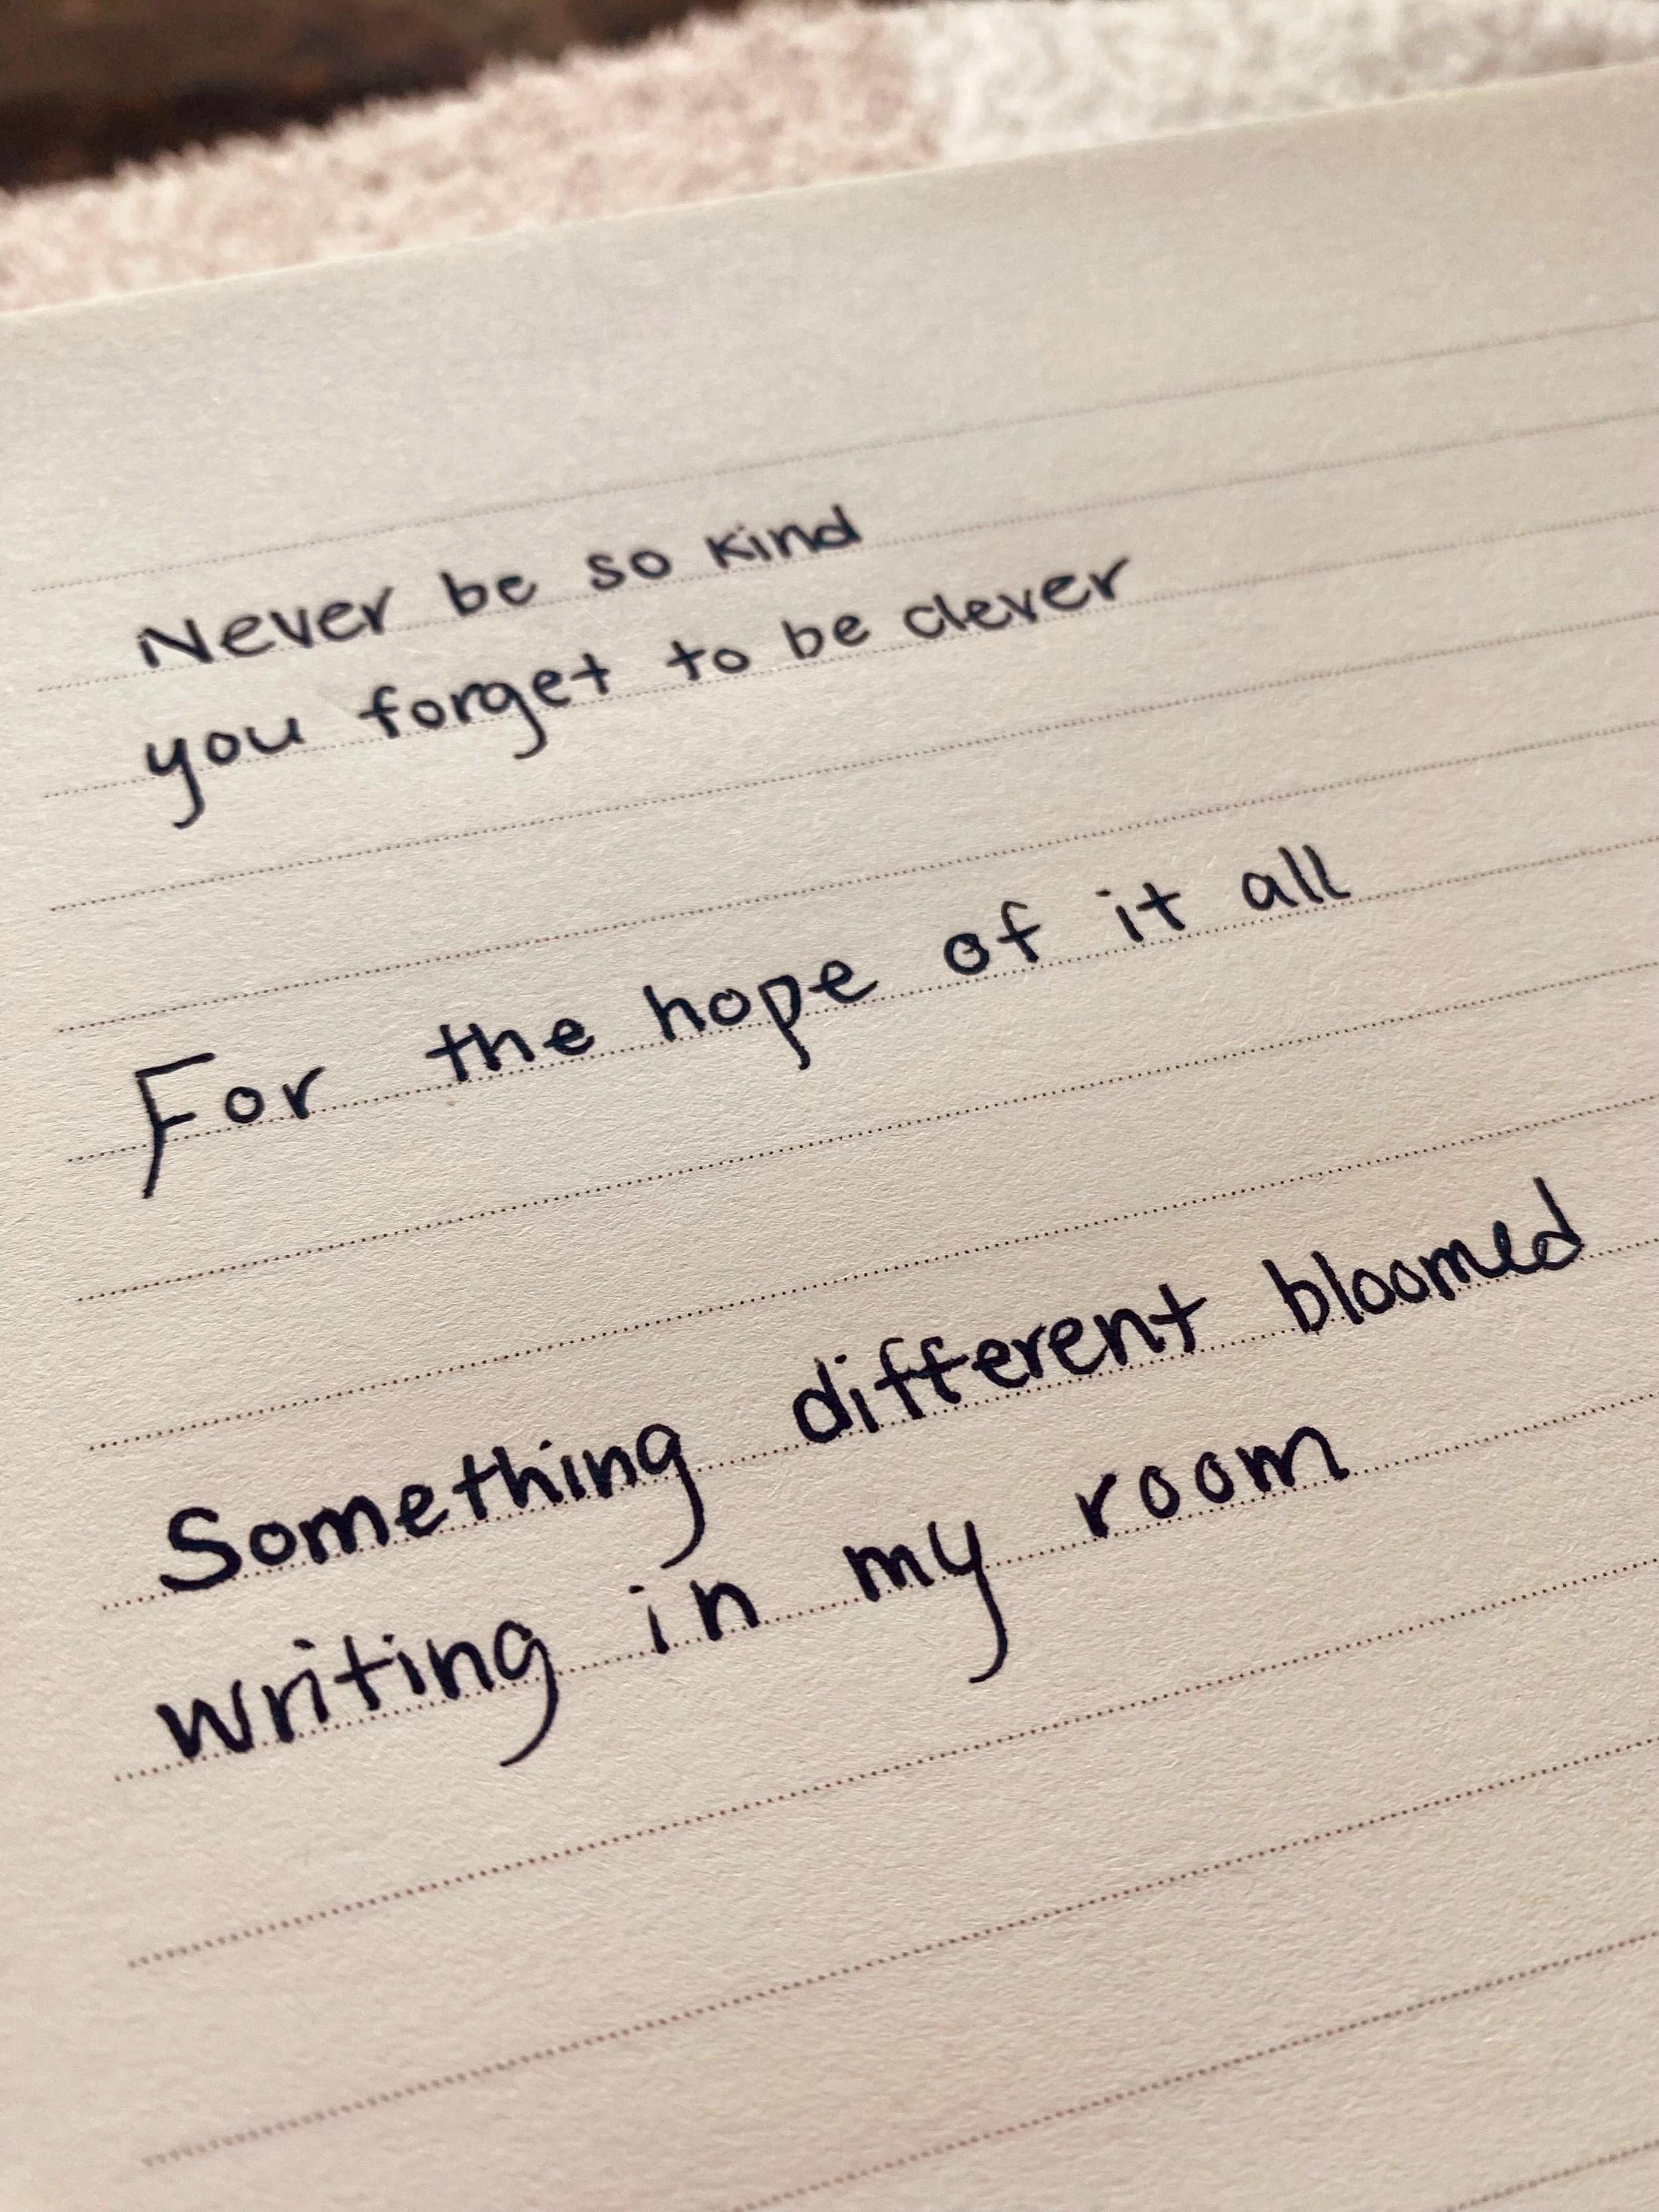 Never be so kind
you forget to be clever
For the hope of it all
Something different bloomed
writing in my room